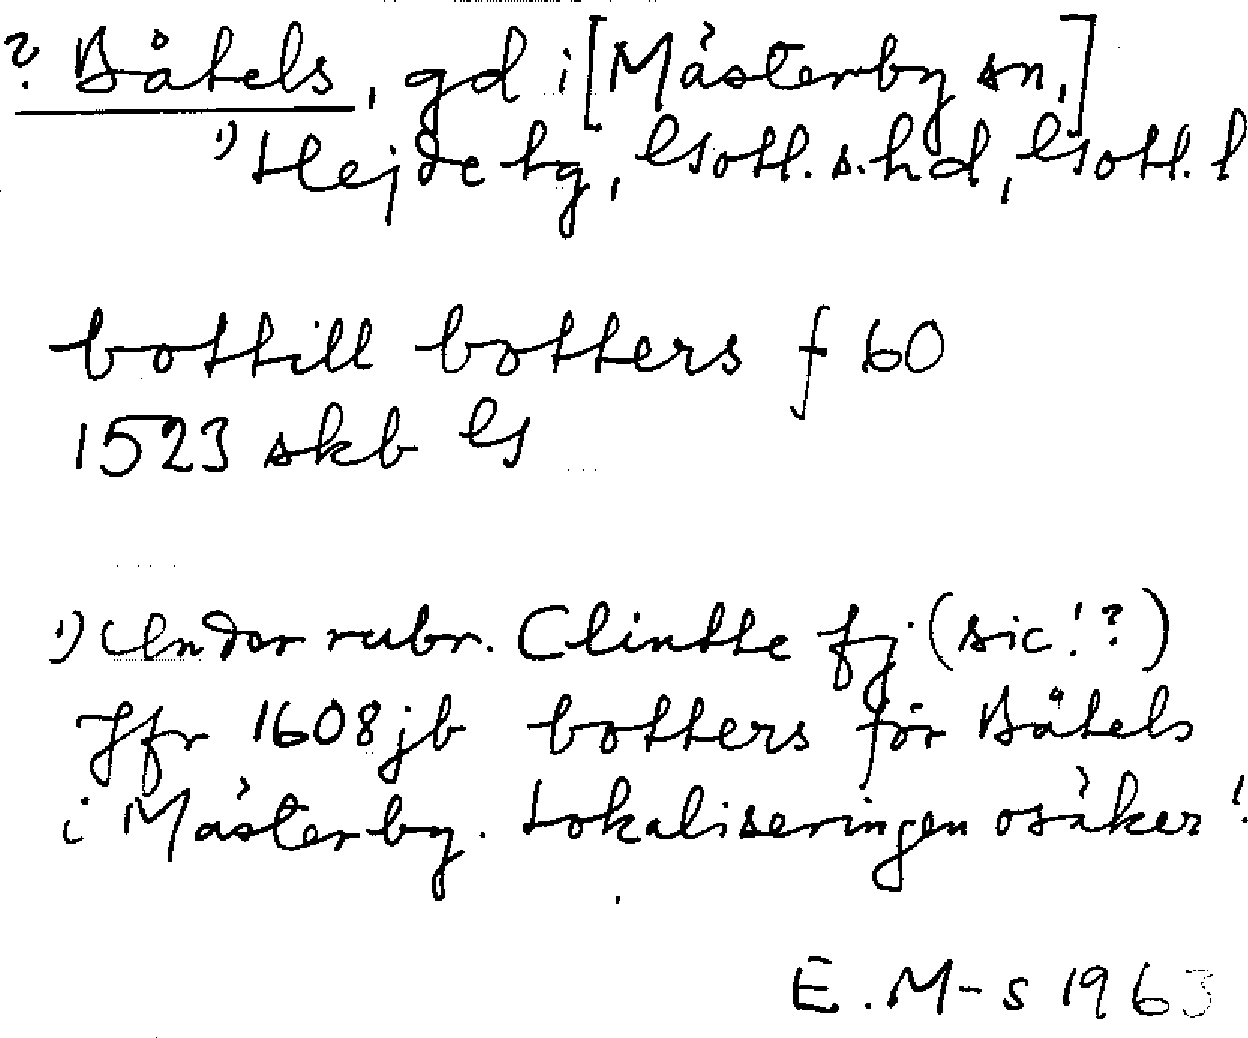 ? Båtels, gd i [Mästerby sn,]
¹) Hejde tg, Gotl. s. hd, Gotl. l
bottill botters f 60
1523 skb G
¹) Under rubr. Clintte fj. (sic!?)
Jfr 1608 jb botters för Båtels
i Mästerby. Lokaliseringen osäker!
E. M-s 1963